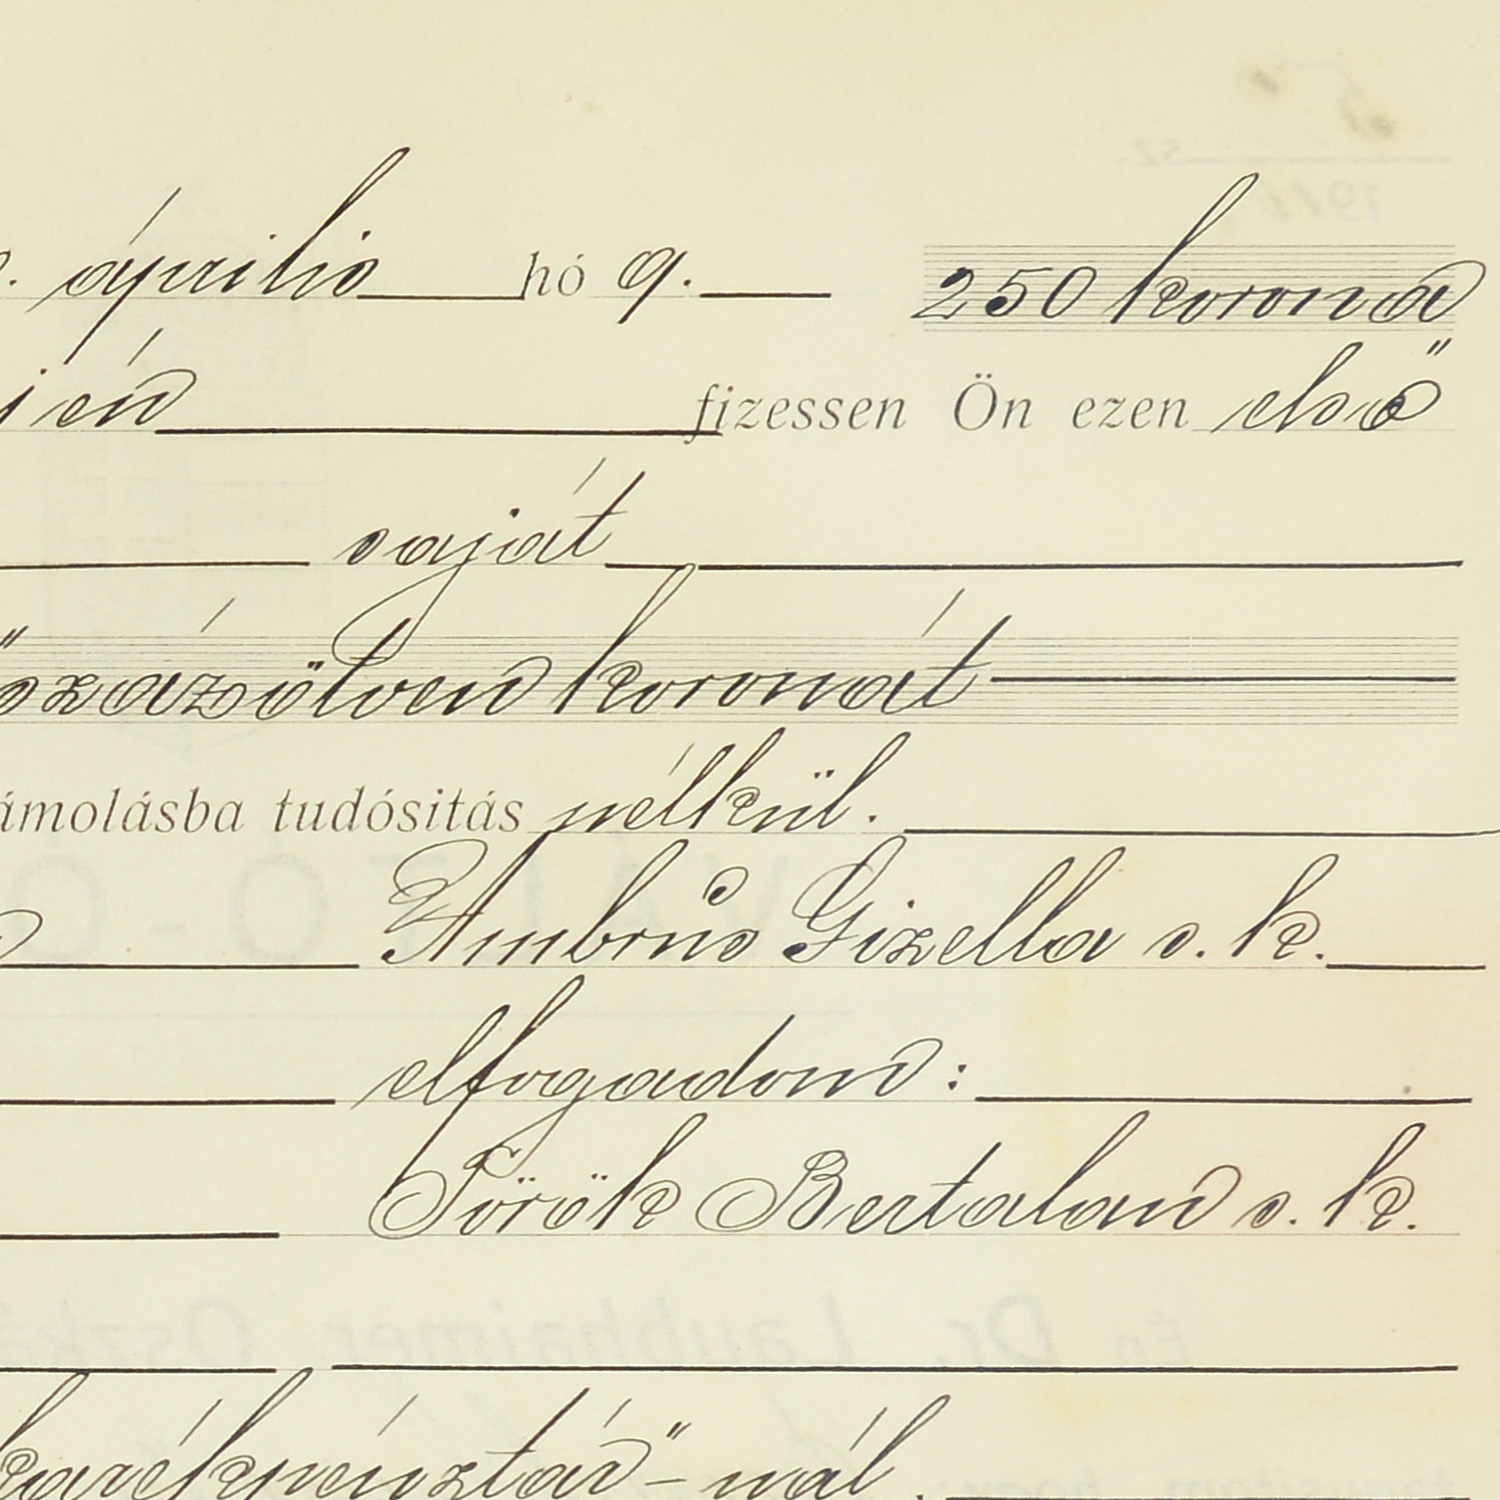 április hó 9. 250 korona
jén fizessen Ön ezen első
saját
"százötven koronát
ámolásba tudósitás nélkül.
Ambrus Gizella s. k.
elfogadom:
Török Bertalan s. k.
karékpénztár"-nál.